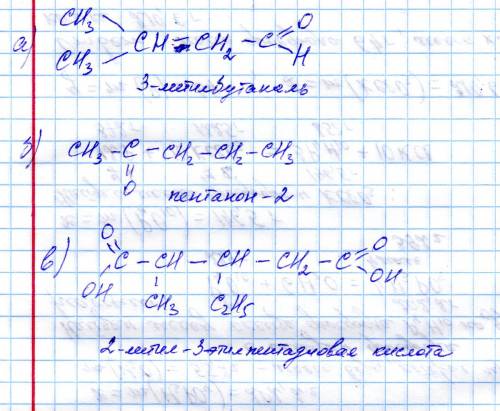 а) CH₃
CH₃ CH - CH₂ - C O H
3-метилбутаналь
б) CH₃ - C - CH₂ - CH₂ - CH₃
O
пентанон-2
в) O C - CH - CH - CH₂ - C O OH
OH CH₃ C₂H₅
2-метил-3-этилпентадиовая кислота